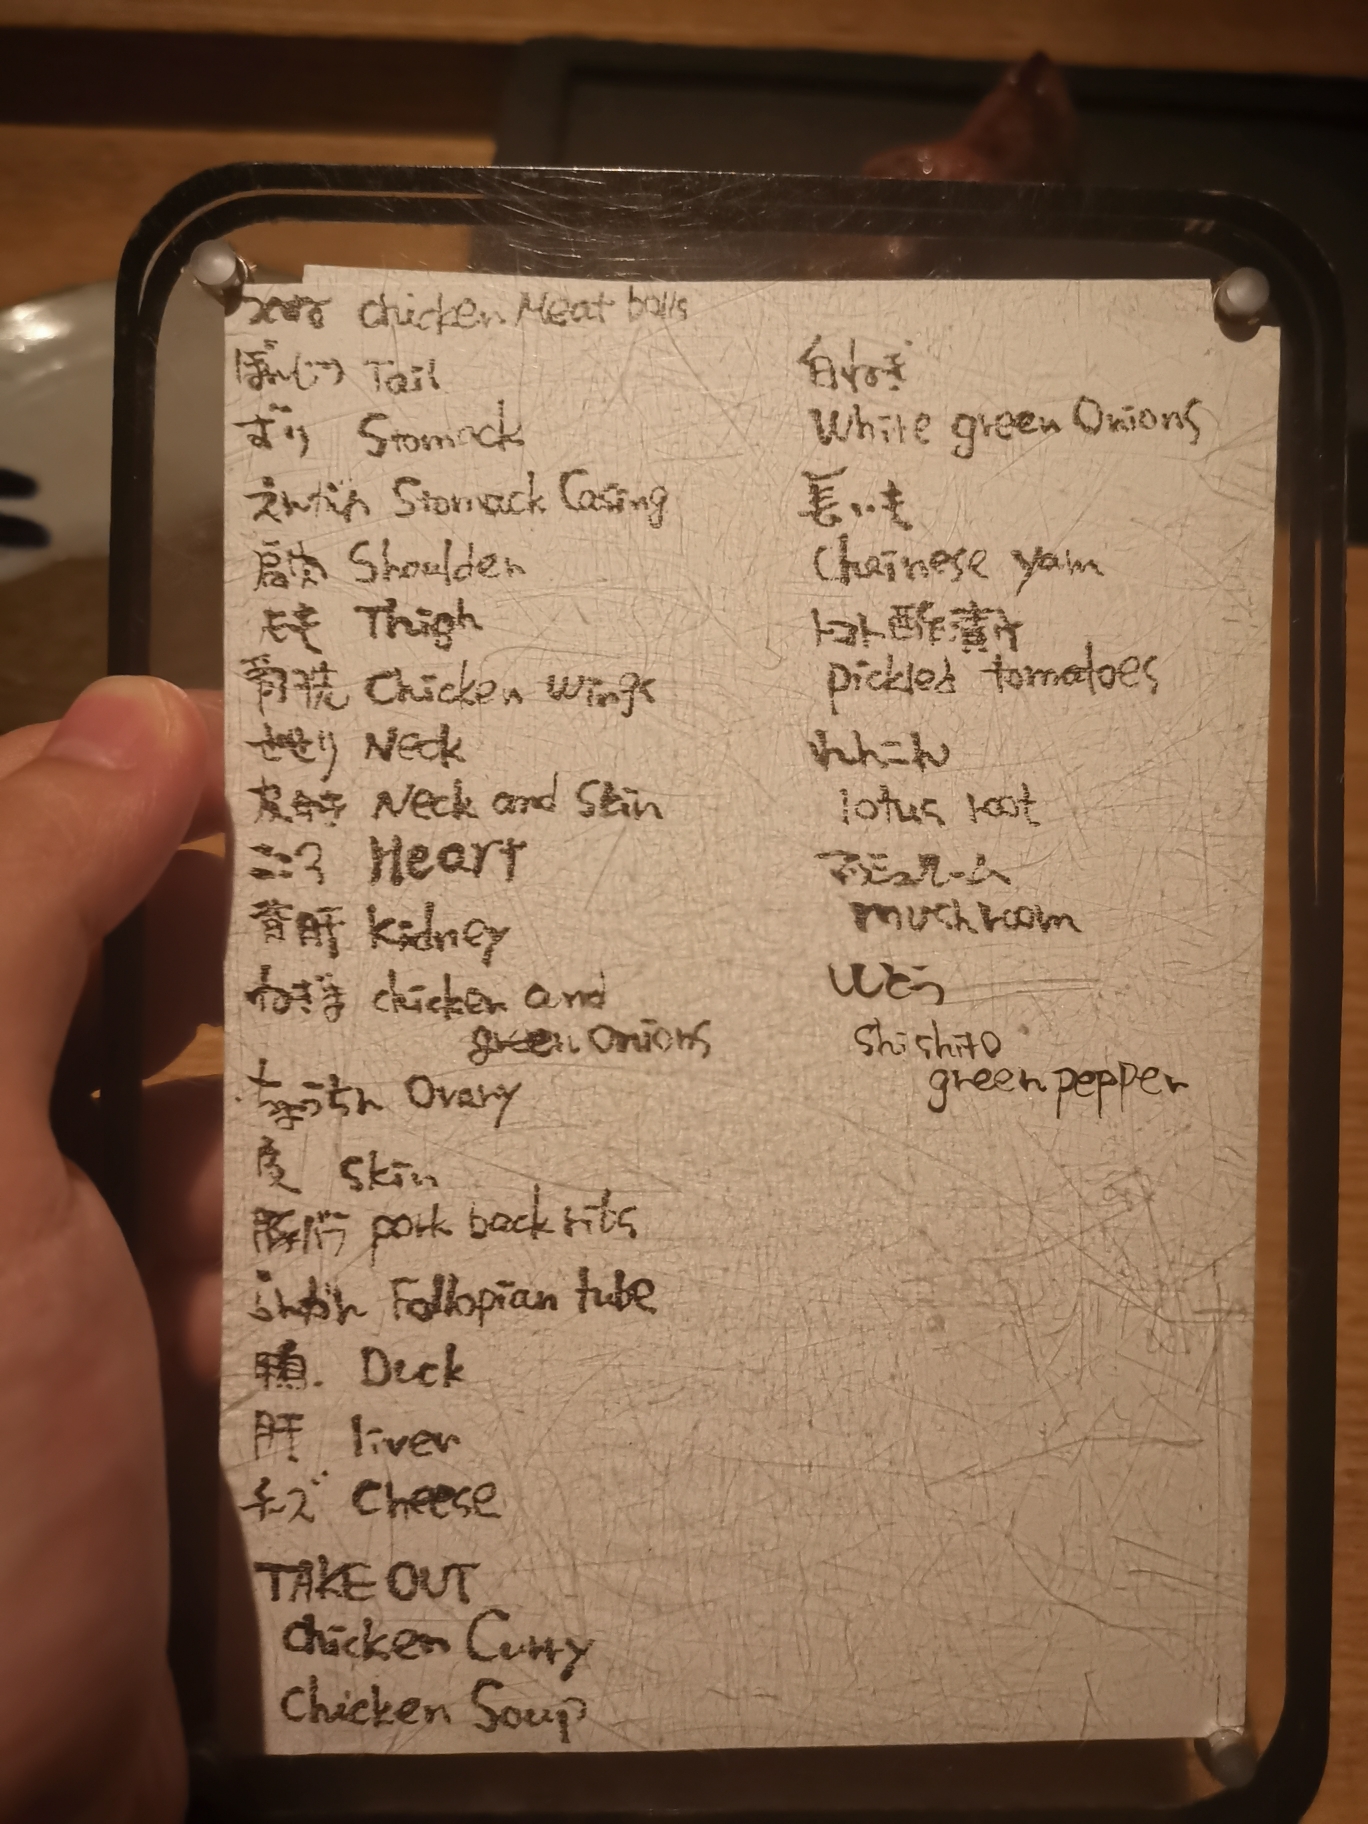 つくね chicken Meat balls
ぼんじり Tail
ずり Stomack
えんがわ Stomack Casing
肩肉 Shoulder
Thigh
手羽先 Chicken Wings
せせり Neck
Neck and Skin
こころ Heart
背肝 kidney
ねぎま chicken and
green onions
ちょうちん Ovary
皮 skin
pork back ribs
Follopian tube
鴨 Duck
肝 liver
チーズ Cheese
TAKE OUT
chicken Curry
Chicken Soup
白ねぎ
White green Onions
長いも
Chainese yam
トマト酢漬け
pickled tomatoes
れんこん
lotus root
マッシュルーム
mushroom
ししとう
shishito
green pepper